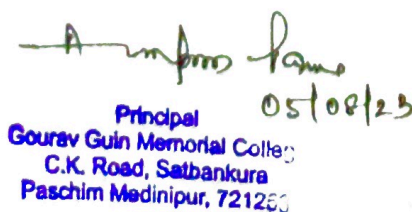 05/08/23
Principal
Gourav Guin Memorial Colleg
C.K. Road, Satbankura
Paschim Medinipur, 721253